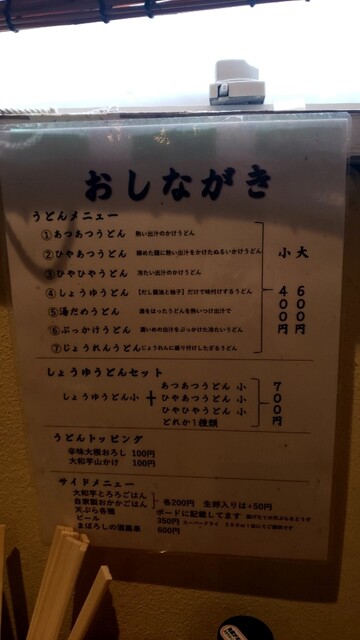 おしながき
うどんメニュー
①あつあつうどん 熱い出汁のかけうどん
②ひやあつうどん 締めた麺に熱い出汁をかけたぬるいかけうどん
③ひやひやうどん 冷たい出汁のかけうどん
④しょうゆうどん 【だし醤油と柚子】だけで味付けするうどん
⑤湯だめうどん 湯をはったうどんを熱いつけ出汁で
⑥ぶっかけうどん 濃いめの出汁をぶっかけた冷たいうどん
⑦じょうれんうどん じょうれんに盛り付けしたざるうどん
小 400円
大 600円
しょうゆうどんセット
しょうゆうどん小 + あつあつうどん 小
ひやあつうどん 小
ひやひやうどん 小
どれか1種類
700円
うどんトッピング
辛味大根おろし 100円
大和芋山かけ 100円
サイドメニュー
大和芋とろろごはん
自家製おかかごはん 各200円 生卵入りは+50円
天ぷら各種 ボードに記載してます
ビール 350円 スーパードライ
まぼろしの酒 600円